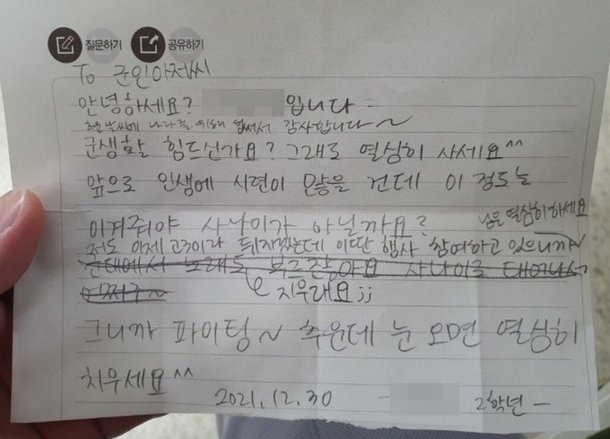 질문하기 공유하기
To 군인아저씨
안녕하세요? 입니다-
추운 날씨에 나라를 위해 힘써서 감사합니다~
군생활 힘드신가요? 그래도 열심히 사세요^^
앞으로 인생에 시련이 많을 건데 이 정도는
이겨줘야 사나이가 아닐까요?
저도 이제 고3이라 뒤지겠는데 이딴 행사 참여하고 있으니까~
님은 열심히하세요
군대에서 노래도 부르잖아요 사나이로 태어나서
어쩌구~
지우래요;;
그니까 파이팅~ 추운데 눈 오면 열심히
치우세요^^
2021.12.30 - 2학년-